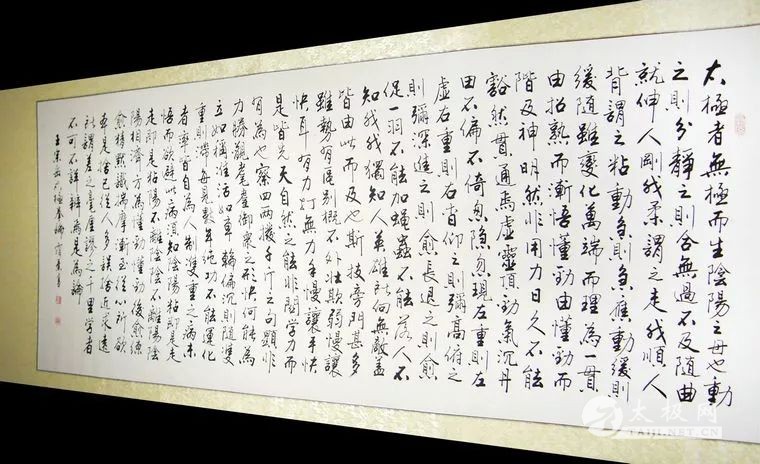 太極者無極而生陰陽之母也動
之則分靜之則合無過不及隨曲
就伸人剛我柔謂之走我順人
背謂之粘動急則急應動緩則
緩隨雖變化萬端而理為一貫
由招熟而漸悟懂勁由懂勁而
階及神明然非用力日久不能
豁然貫通焉虛靈頂勁氣沉丹
田不偏不倚忽隱忽現左重則左
虛右重則右杳仰之則彌高俯之
則彌深進之則愈長退之則愈
促一羽不能加蠅蟲不能落人不
知我我獨知人英雄所向無敵蓋
皆由此而及也斯技旁門甚多
雖勢有區別概不外壯欺弱慢讓
快耳有力打無力手慢讓手快
是皆先天自然之能非關學力而
有為也察四兩撥千斤之句顯非
力勝觀耄耋御眾之形快何能為
立如準活如車輪偏沉則隨雙
重則滯每見數年純功不能運化
者率皆自為人制雙重之病未
悟而欲避此病須知陰陽粘即是走
走即是粘陽不離陰陰不離陽陰
陽相濟方為懂勁懂勁後愈練
愈精默識揣摩漸至從心所欲
本是捨己從人多誤捨近求遠
所謂差之毫釐謬之千里學者
不可不詳辨焉是為論
王宗岳太極拳論
太极网
TAIJI.NET.CN